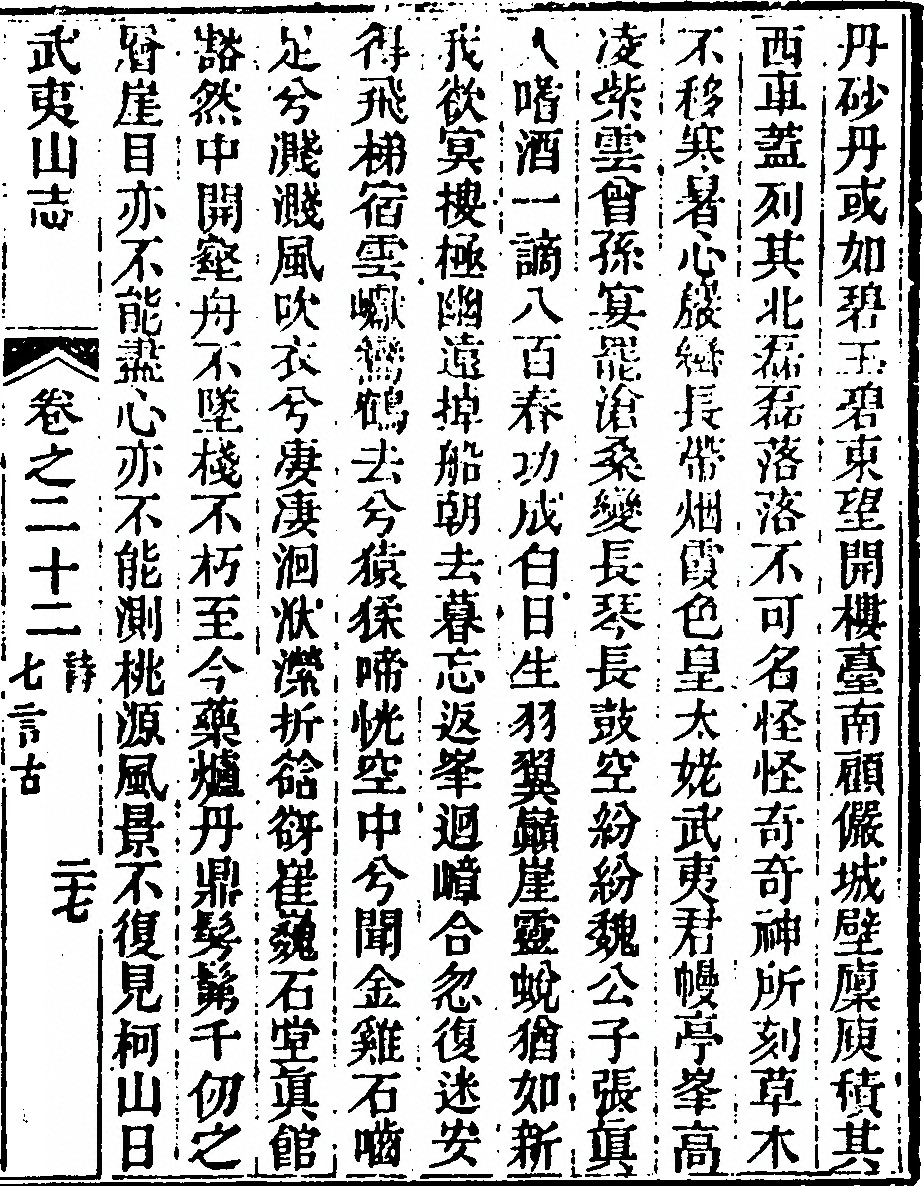 丹砂丹或如碧玉碧東望開樓臺南顧儼城壁廪庾積其
西車蓋列其北磊磊落落不可名怪怪奇奇神所刻草木
不移寒暑心巖巒長帶烟霞色皇太姥武夷君幔亭峯高
凌紫雲曾孫宴罷滄桑變長琴長鼓空紛紛魏公子張眞
人嗜酒一謫八百春功成白日生羽翼巔崖靈蛻猶如新
我欲冥搜極幽遠掉船朝去暮忘返峯迴嶂合忽復迷安
得飛梯宿雲巘鸞鶴去兮猿猱啼恍空中兮聞金雞石嚙
足兮濺濺風吹衣兮凄凄洄洑瀠折谽谺崔巍石堂眞館
豁然中開壑舟不墜棧不朽至今藥爐丹鼎髣髴千仞之
層崖目亦不能盡心亦不能測桃源風景不復見柯山日
武夷山志
卷之二十二
詩
七言古
二七